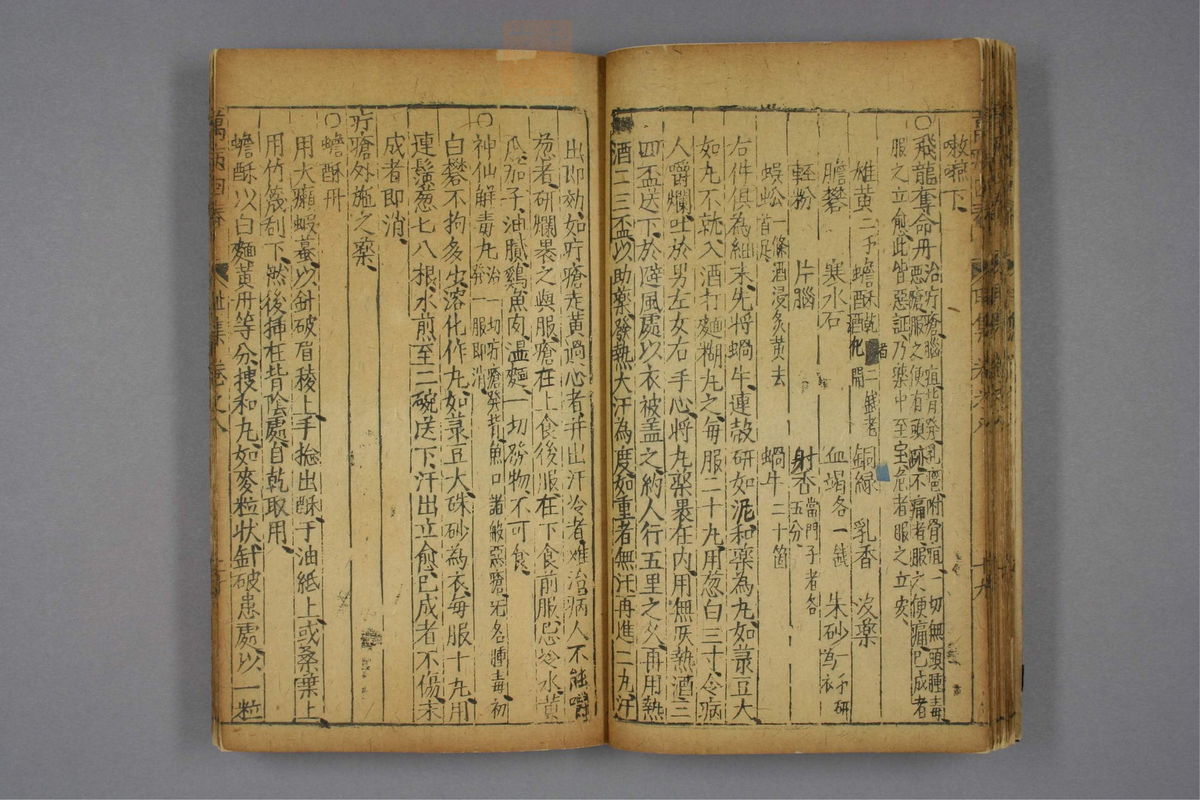 嗽嚥下、
○飛龍奪命丹 治疔瘡、腦疽、背發、乳癰、附骨疽、一切無頭腫毒、
惡瘡、服之便有頭、不痛者、服之便痛、已成者
服之立愈、此皆惡証、乃藥中至宝、危者服之立安、
雄黃二錢 蟾酥乾者二錢、老酒化開 銅綠 乳香 沒藥
膽礬 寒水石 血竭各一錢 朱砂一錢、研為衣
輕粉 片腦 射香當門子者各五分
蜈蚣一條、酒浸炙黃、去首足 蝸牛二十箇
右件俱為細末、先將蝸牛連殻研如泥、和藥為丸、如菉豆大、
如丸不就、入酒打麵糊丸之、每服二十九、用葱白三寸、令病
人嚼爛、吐於男左女右手心、將丸藥裹在內、用無灰熱酒三
四盃送下、於避風處、以衣被盖之、約人行五里之久、再用熱
酒二三盃、以助藥、發熱大汗為度、如重者無汗、再進二丸、汗
出即効、如疔瘡走黃過心者、并出汗冷者、难治、病人不能嚼
葱者、研爛裹之與服、瘡在上食後服、在下食前服、忌冷水、黃
瓜、茄子、油膩、鷄、魚肉、湿麵、一切發物不可食、
○神仙解毒丸 治一切疔瘡、發背、魚口、諸般惡瘡、无名腫毒、初
發一服即消、
白礬不拘多少、溶化作丸、如菉豆大、硃砂為衣、每服十九、用
連鬚葱七八根、水煎至二碗送下、汗出立愈、已成者不傷、未
成者即消、
疔瘡外施之藥、
○蟾酥丹
用大癩蝦蟇、以針破眉稜上、手捻出酥、于油紙上或桑葉上、
用竹篾刮下、然後揷在背陰處、自乾取用、
蟾酥以白麵黃丹等分、搜和丸、如麥粒状、針破患處、以一粒